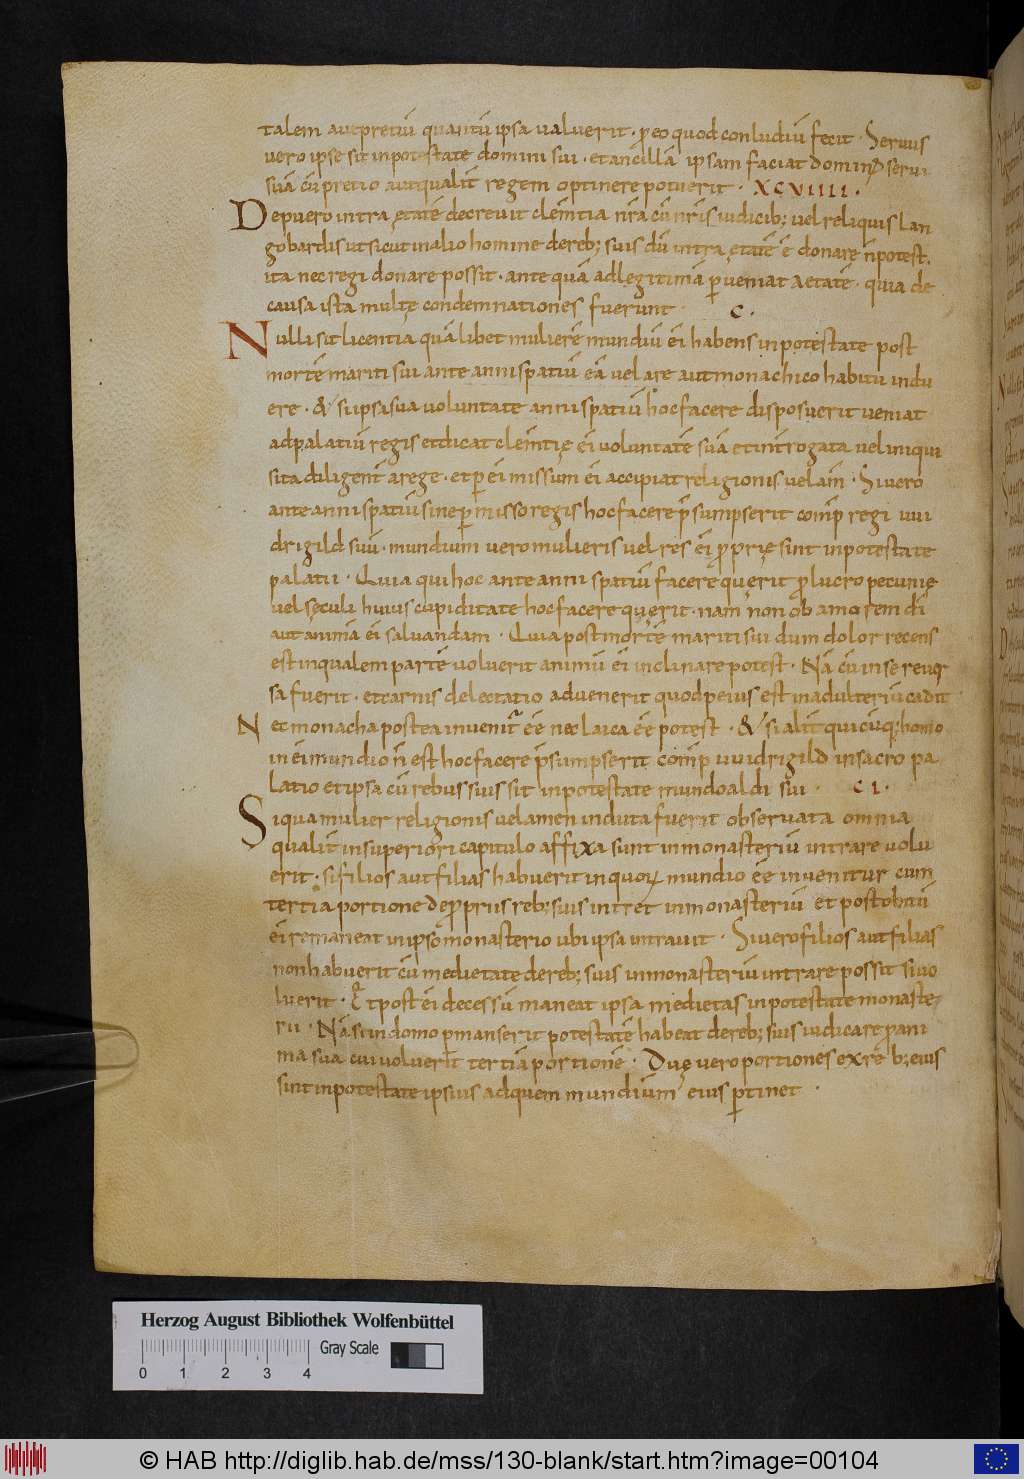 talem aut pretiū quantū ipsa valuerit · p eo quod conludiū fecit · Servus
vero ipse sit in potestate domini sui · et ancillā ipsam faciat domin servi
suā cū pretio aut qualit regem optinere potuerit · XCVIIII ·
De puero intra ętatē decrevit clemtia nra cū nris iudicib; vel reliquis lan
gobardis ut sicut in alio homine de reb; suis dū intra ętatē ē donare n potest ·
ita nec regi donare possit · ante quā ad legitimā pveniat aetatē · quia de
causa ista multę condemnationes fuerunt · C ·
Nulli sit licentia quālibet mulierē mundiū ei habens in potestate post
mortē mariti sui ante anni spatiū eā velare aut monachico habitu indu
ere · & si ipsa sua voluntate anni spatiū hoc facere disposuerit veniat
ad palatiū regis et dicat clemtię ei voluntatē suā et introgata vel inqui
sita diligent a rege · et p ei missum ei accipiat religionis velam · Si vero
ante anni spatiū sine pmisso regis hoc facere psumpserit comp regi uui
drigild suū · mundium vero mulieris vel res ei proprię sint in potestate
palatii · Quia qui hoc ante anni spatiū facere quęrit p lucro pecunię
vel sęculi huius cupiditate hoc facere quęrit · nam non ob amorem di
aut animā ei salvandam · Quia post mortē mariti sui dum dolor recens
est in qualem partē voluerit animū ei inclinare potest · Nā cū in se rever
sa fuerit · et carnis delectatio advenerit quod peius est in adulteriū cadit
Nec monacha postea invenit eē nec laica eē potest · & si alit quicūq; homo
in ei mundio n est hoc facere psumpserit comp uuidrigild in sacro pa
latio et ipsa cū rebus suis sit in potestate mundoaldi sui · CI ·
Siqua mulier religionis velamen induta fuerit observata omnia
qualit in superiori capitulo affixa sunt in monasteriū intrare volu
erit · si filios aut filias habuerit in quor mundio eē invenitur cum
tertia portione de propriis reb; suis intret in monasteriū et post obitū
ei remaneat in ipso monasterio ubi ipsa intravit · Si vero filios aut filias
non habuerit cū medietate de reb; suis in monasteriū intrare possit si vo
luerit · Et post ei decessū maneat ipsa medietas in potestate monaste
rii · Nā si in domo pmanserit potestatē habeat de reb; suis iudicare p ani
ma sua cui voluerit tertiā portionē · Duę vero portiones ex reb; eius
sint in potestate ipsius ad quem mundium eius ptinet ·
Herzog August Bibliothek Wolfenbüttel
Gray Scale
0 1 2 3 4
© HAB http://diglib.hab.de/mss/130-blank/start.htm?image=00104